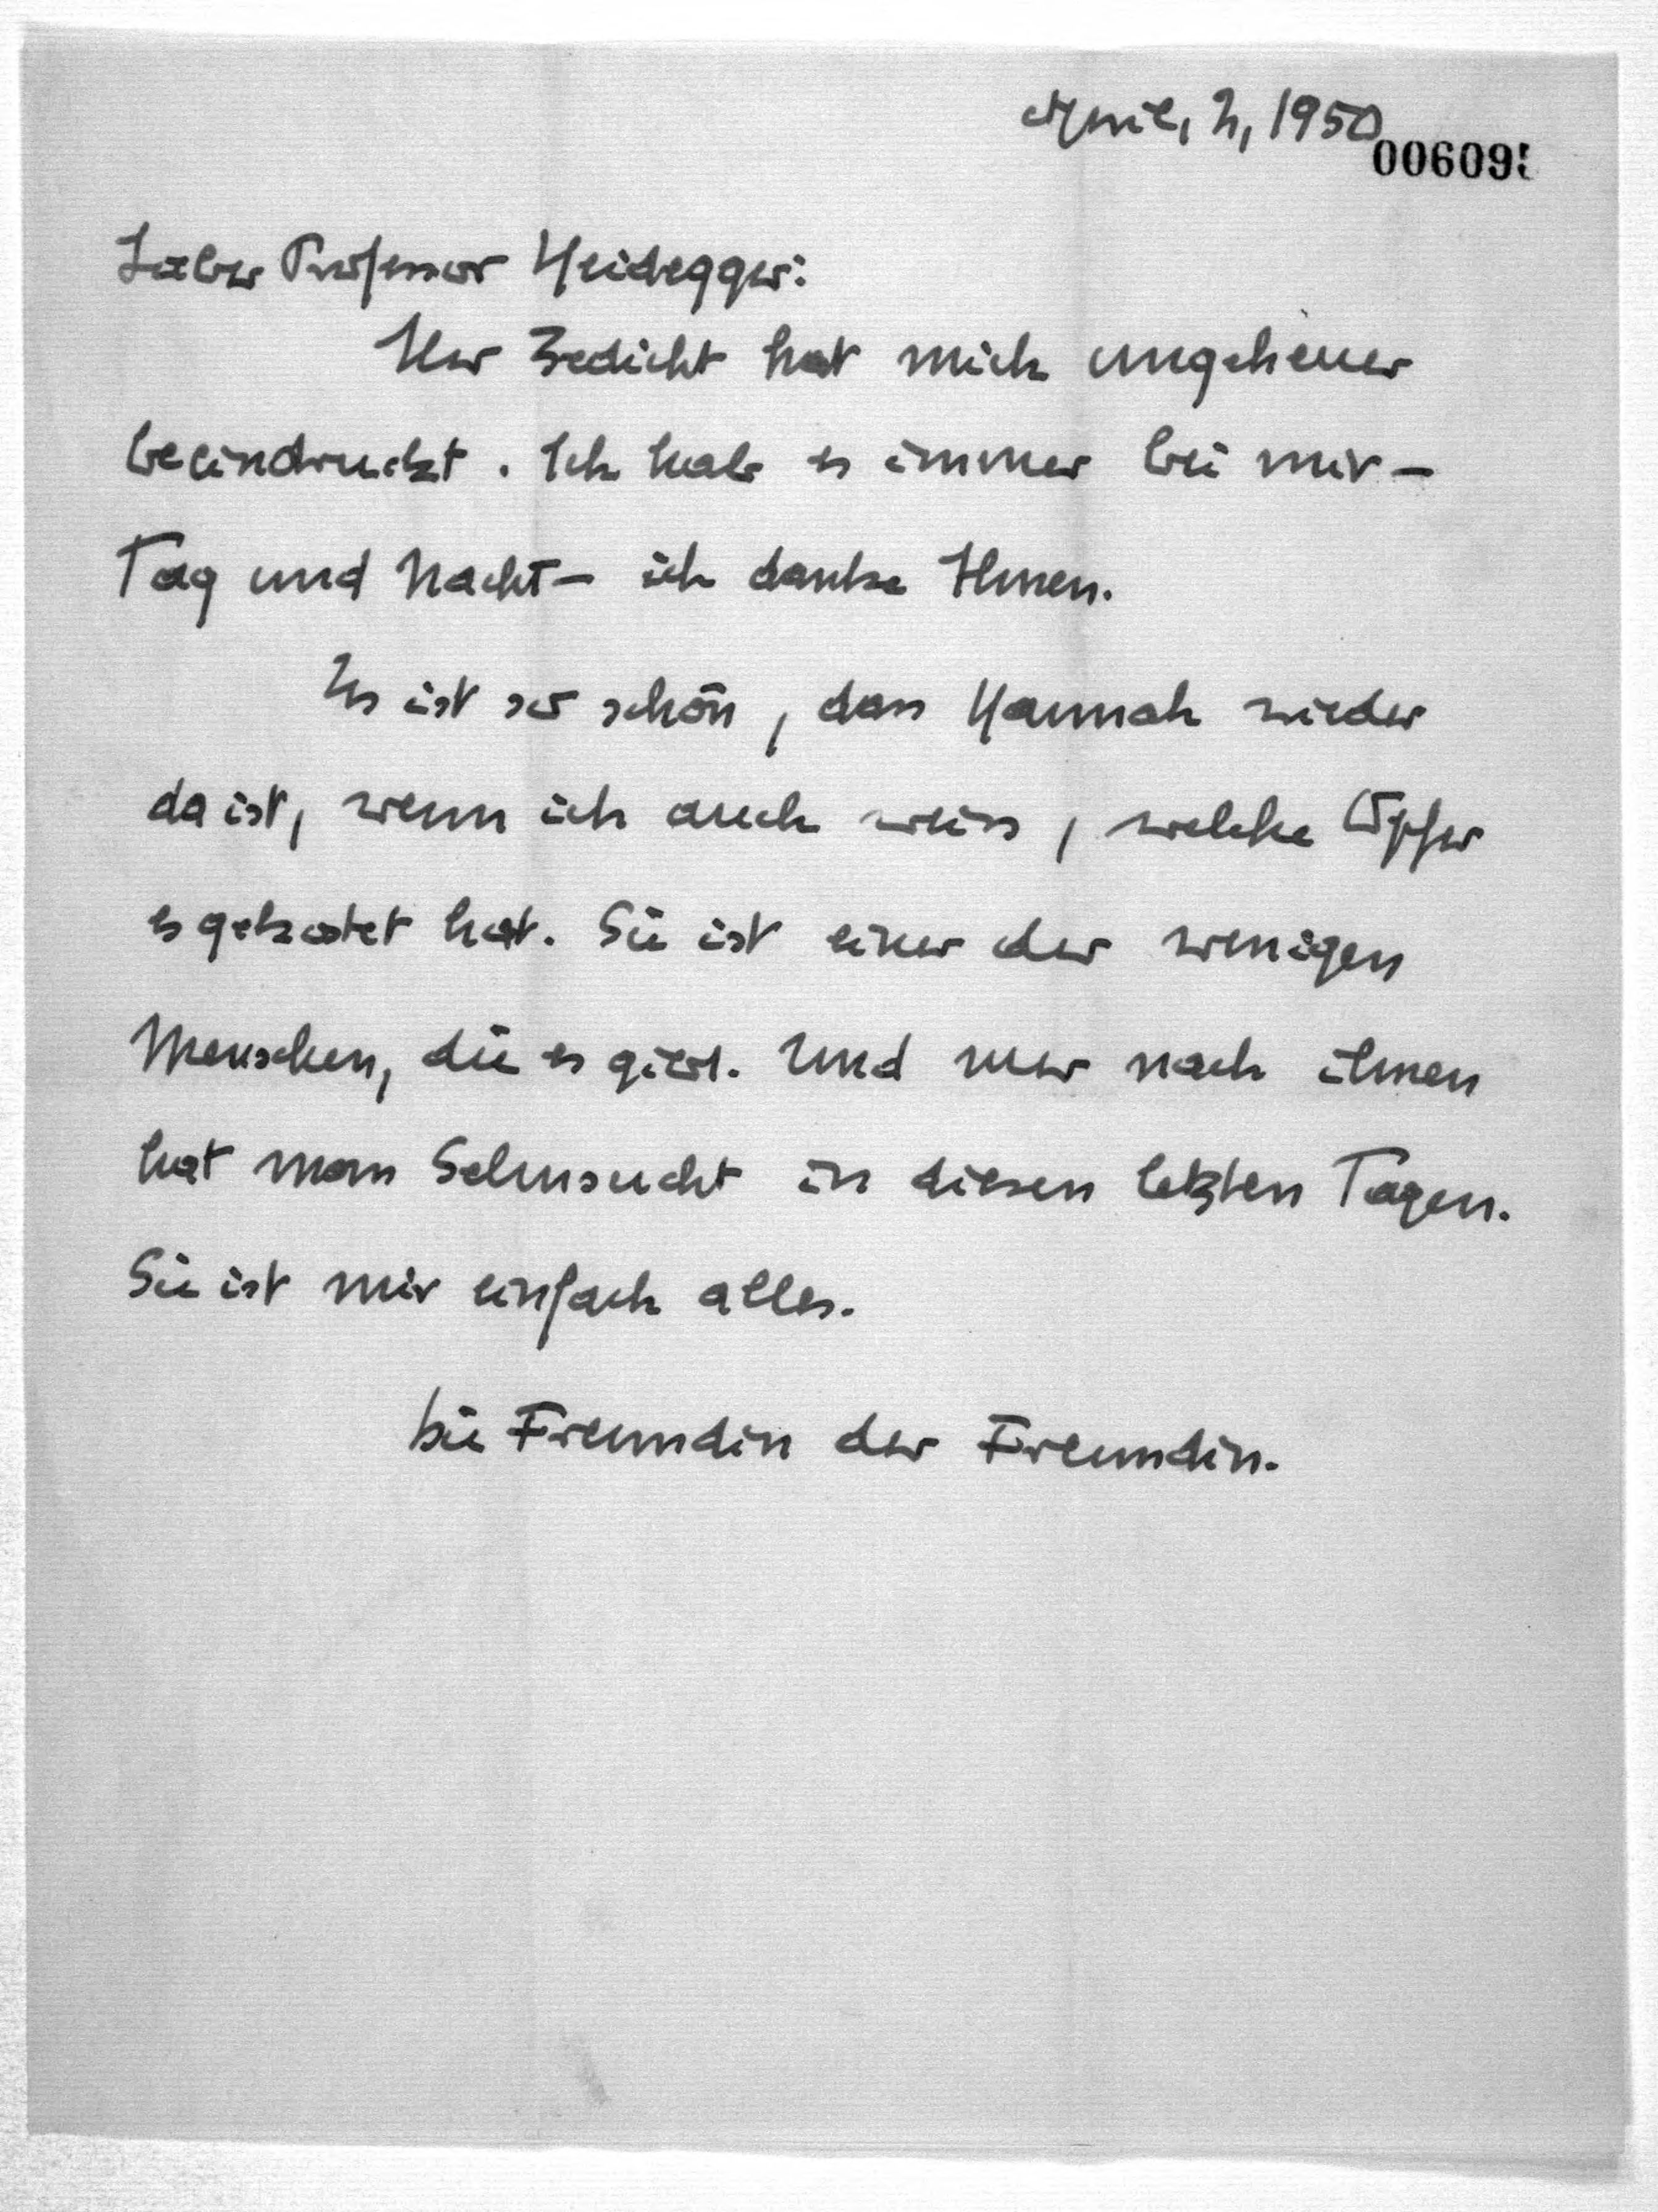 April, 2, 1950
006095
Lieber Professor Heidegger:
Ihr Gedicht hat mich ungeheuer
beeindruckt. Ich habe es immer bei mir –
Tag und Nacht – ich danke Ihnen.
Es ist so schön, dass Hannah wieder
da ist, wenn ich auch weiss, welche Opfer
es gekostet hat. Sie ist einer der wenigen
Menschen, die es gibt. Und nur nach ihnen
hat man Sehnsucht in diesen letzten Tagen.
Sie ist mir einfach alles.
Die Freundin der Freundin.